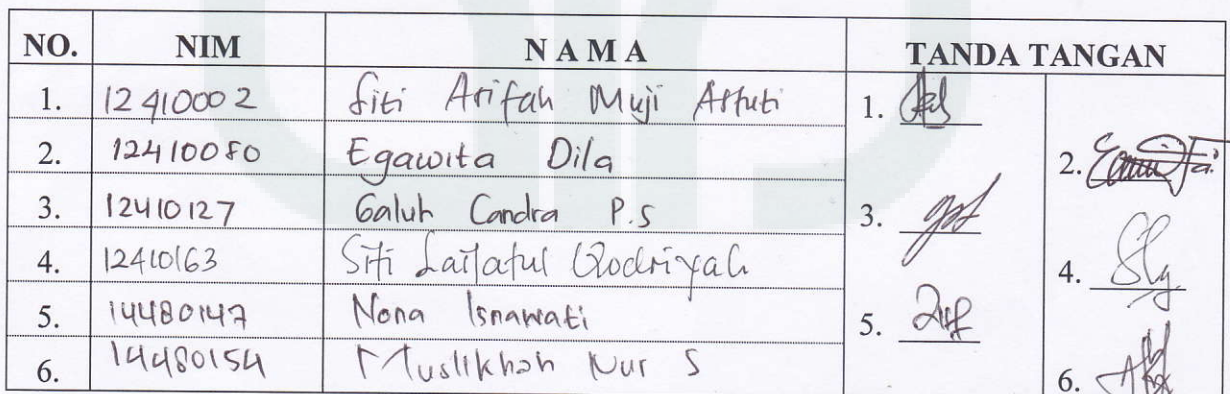 NO. NIM N A M A TANDA TANGAN
1. 12410002 Siti Arifah Muji Astuti 1.
2. 12410080 Egawita Dila 2.
3. 12410127 Galuh Candra P.S 3.
4. 12410163 Siti Lailatul Qodriyah 4.
5. 14480147 Nona Isnawati 5.
6. 14480154 Muslikhah Nur S 6.